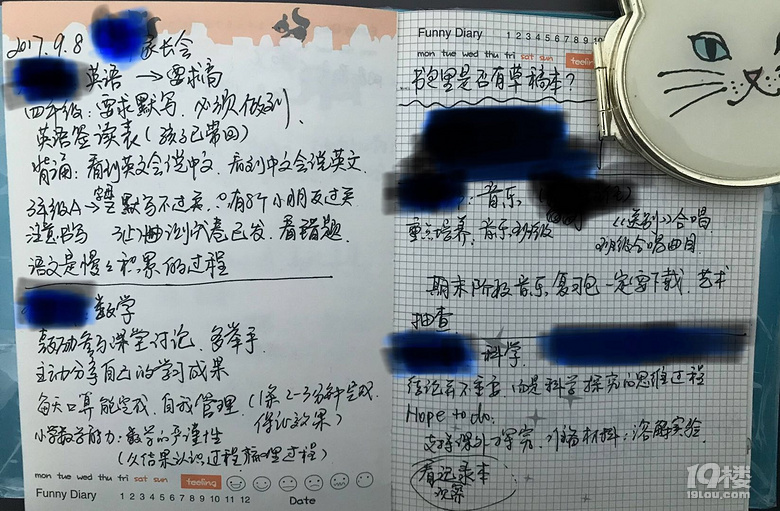 2017.9.8 家长会
英语 → 要求高
四年级：要求默写，必须做到，
英语签读表（孩子已带回）
背诵：看到英文会说中文，看到中文会说英文
3年级A → 默写不过关，只有8个小朋友过关
注意书写 测试卷已发，看错题
语文是慢々积累的过程
数学
鼓励参与课堂讨论，多举手
主动分享自己的学习成果
每天口算能完成，自我管理（1条2-3分钟完成，
保证效果）
小学数学能力：数学的严谨性
（从结果认识过程梳理过程）
mon tue wed thu fri sat sun feeling
Funny Diary 1 2 3 4 5 6 7 8 9 10 11 12 Date
Funny Diary 1 2 3 4 5 6 7 8 9 10
mon tue wed thu fri sat sun feeling
书包里是否有草稿本？
：音乐
重点培养，音乐班级 《送别》合唱
班级合唱曲目
期末阶段音乐复习包一定要下载，艺术
抽查
科学
结论并不重要，而是科学探究的思维过程
Hope to do:
支持课外探究，准备材料：溶解实验
看记录本
观察
19楼
19lou.com